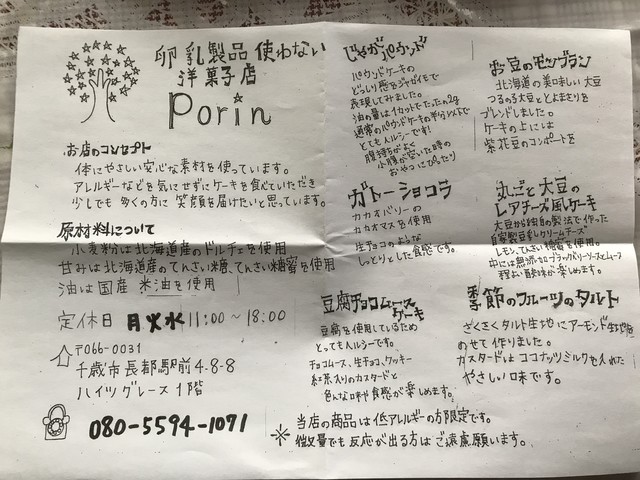 卵乳製品使わない
洋菓子店
Porin
お店のコンセプト
体にやさしい安心な素材を使っています。
アレルギーなどを気にせずにケーキを食べていただき
少しでも多くの方に笑顔を届けたいと思っています。
原材料について
小麦粉は北海道産のドルチェを使用
甘みは北海道産のてんさい糖、てんさい糖蜜を使用
油は国産 米油を使用
定休日 月火水 11:00～18:00
〒066-0031
千歳市長都駅前4-8-8
ハイツグレース1階
080-5594-1071
じゃがパウンド
パウンドケーキの
どっしり感をジャガイモで
表現してみました。
油の量は1カットでたったの2g
通常のパウンドケーキの半分以下で
とてもヘルシーです!
腹持ちがよく
小腹が空いた時の
おやつにぴったり
ガトーショコラ
カカオバリーの
カカオマスを使用
生チョコのような
しっとりとした食感です。
豆腐チョコムース
ケーキ
豆腐を使用しているため
とってもヘルシーです。
チョコムース、生チョコ、クッキー
紅茶入りのカスタードと
色んな味や食感が楽しめます。
お豆のモンブラン
北海道の美味しい大豆
つるの子大豆ととよまさりを
ブレンドしました。
ケーキの上には
紫花豆のコンポートを
丸ごと大豆の
レアチーズ風ケーキ
大豆から独自の製法で作った
自家製豆乳クリームチーズ
レモン、てんさい糖蜜を使用。
中には無添加ブラックベリーソースとムース
程よい酸味が楽しめます。
季節のフルーツのタルト
ざくざくタルト生地にアーモンド生地を
のせて作りました。
カスタードはココナッツミルクを入れた
やさしい口味です。
※当店の商品は低アレルギーの方限定です。
微量でも反応が出る方はご遠慮願います。